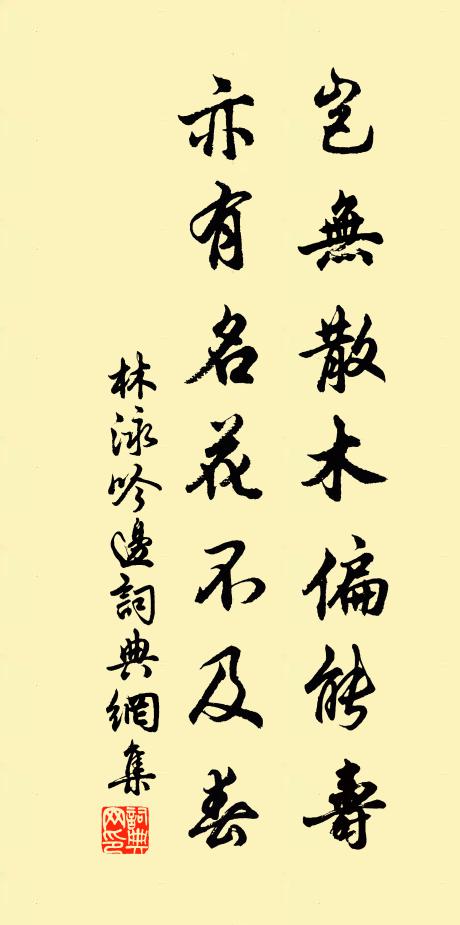 豈無散木偏能壽
亦有名花不及春
林泳吟邊詞典網集
詞典网印